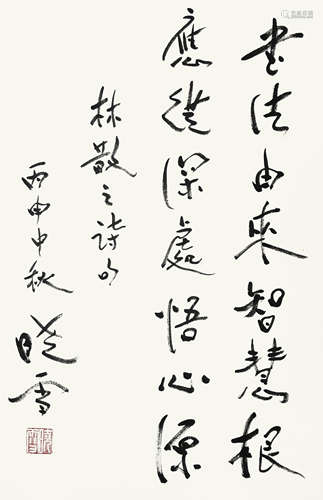 書法由来智慧根
應從深處悟心源
林散之詩句
丙申中秋
晓雪